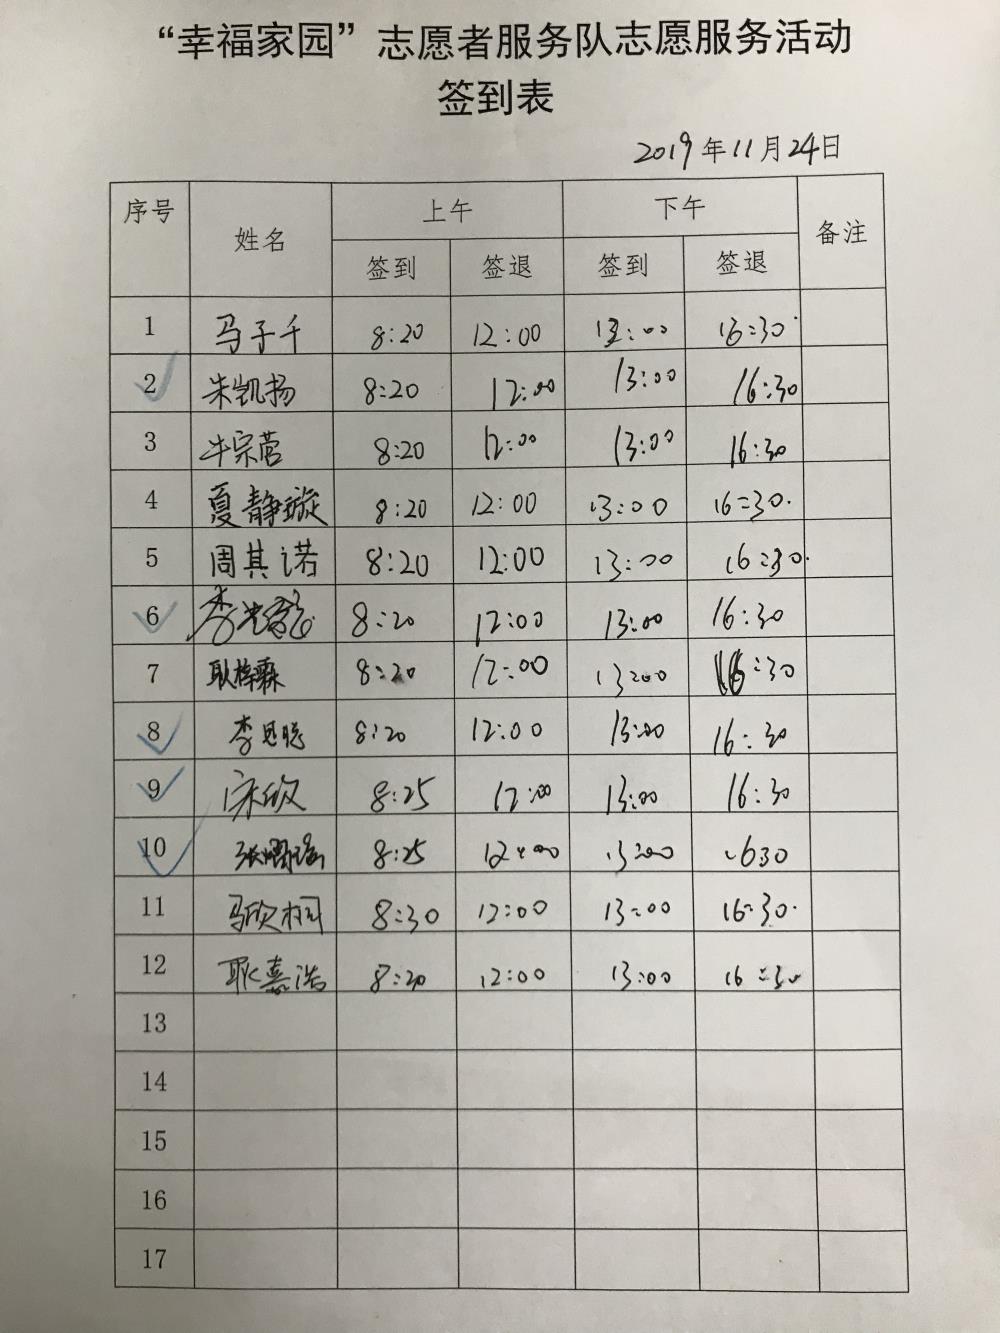 “幸福家园”志愿者服务队志愿服务活动
签到表
2019年11月24日
序号 姓名 上午 下午 备注
签到 签退 签到 签退
1 马子千 8:20 12:00 13:00 16:30
2 朱凯扬 8:20 12:00 13:00 16:30
3 牛宗营 8:20 12:00 13:00 16:30
4 夏静璇 8:20 12:00 13:00 16:30
5 周其诺 8:20 12:00 13:00 16:30
6 李 8:20 12:00 13:00 16:30
7 耿梓霖 8:20 12:00 13:00 16:30
8 李思聪 8:20 12:00 13:00 16:30
9 宋欣 8:25 12:00 13:00 16:30
10 张 8:25 12:00 13:00 1630
11 马欣桐 8:30 12:00 13:00 16:30
12 耿嘉浩 8:20 12:00 13:00 16:30
13
14
15
16
17